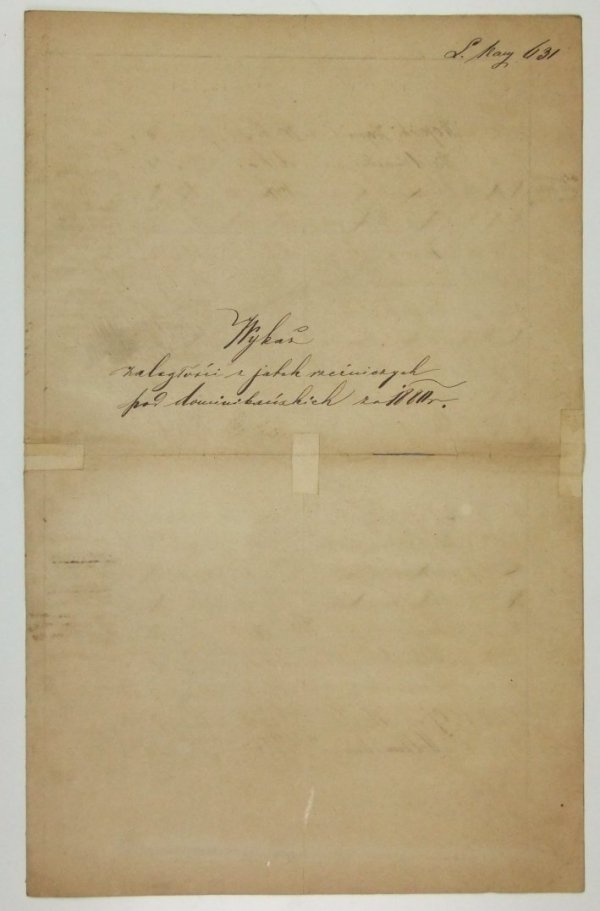 L. kasy 631
Wykaz
zaległości z jatek rzeźniczych
pod dominikańskich za 1880 r.